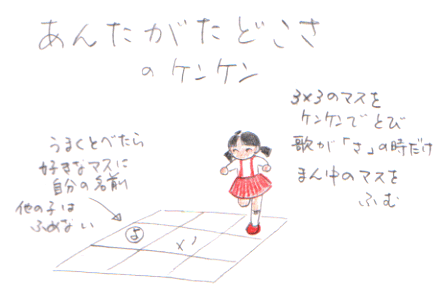 あんたがたどこさ
のケンケン
3×3のマスを
ケンケンでとび
歌が「さ」の時だけ
まん中のマスを
ふむ
うまくとべたら
好きなマスに
自分の名前
他の子は
ふめない
よ